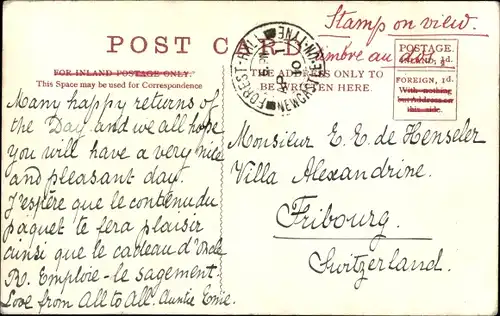 Stamp on view.
POST CARD
Timbre au dos
FOREST-HALL
NEWCASTLE-UPON-TYNE
POSTAGE.
INLAND, ½d.
FOREIGN, 1d.
With nothing
but Address on
this side.
FOR INLAND POSTAGE ONLY.
This Space may be used for Correspondence
THE ADDRESS ONLY TO
BE WRITTEN HERE.
Many happy returns of
the Day and we all hope
you will have a very nice
and pleasant day.
J'espère que le contenu du
paquet te fera plaisir
ainsi que le cadeau d'Oncle
R. Emploie-le sagement.
Love from All to All. Auntie Emie.
Monsieur E. E. de Henseler
Villa Alexandrine.
Fribourg.
Switzerland.